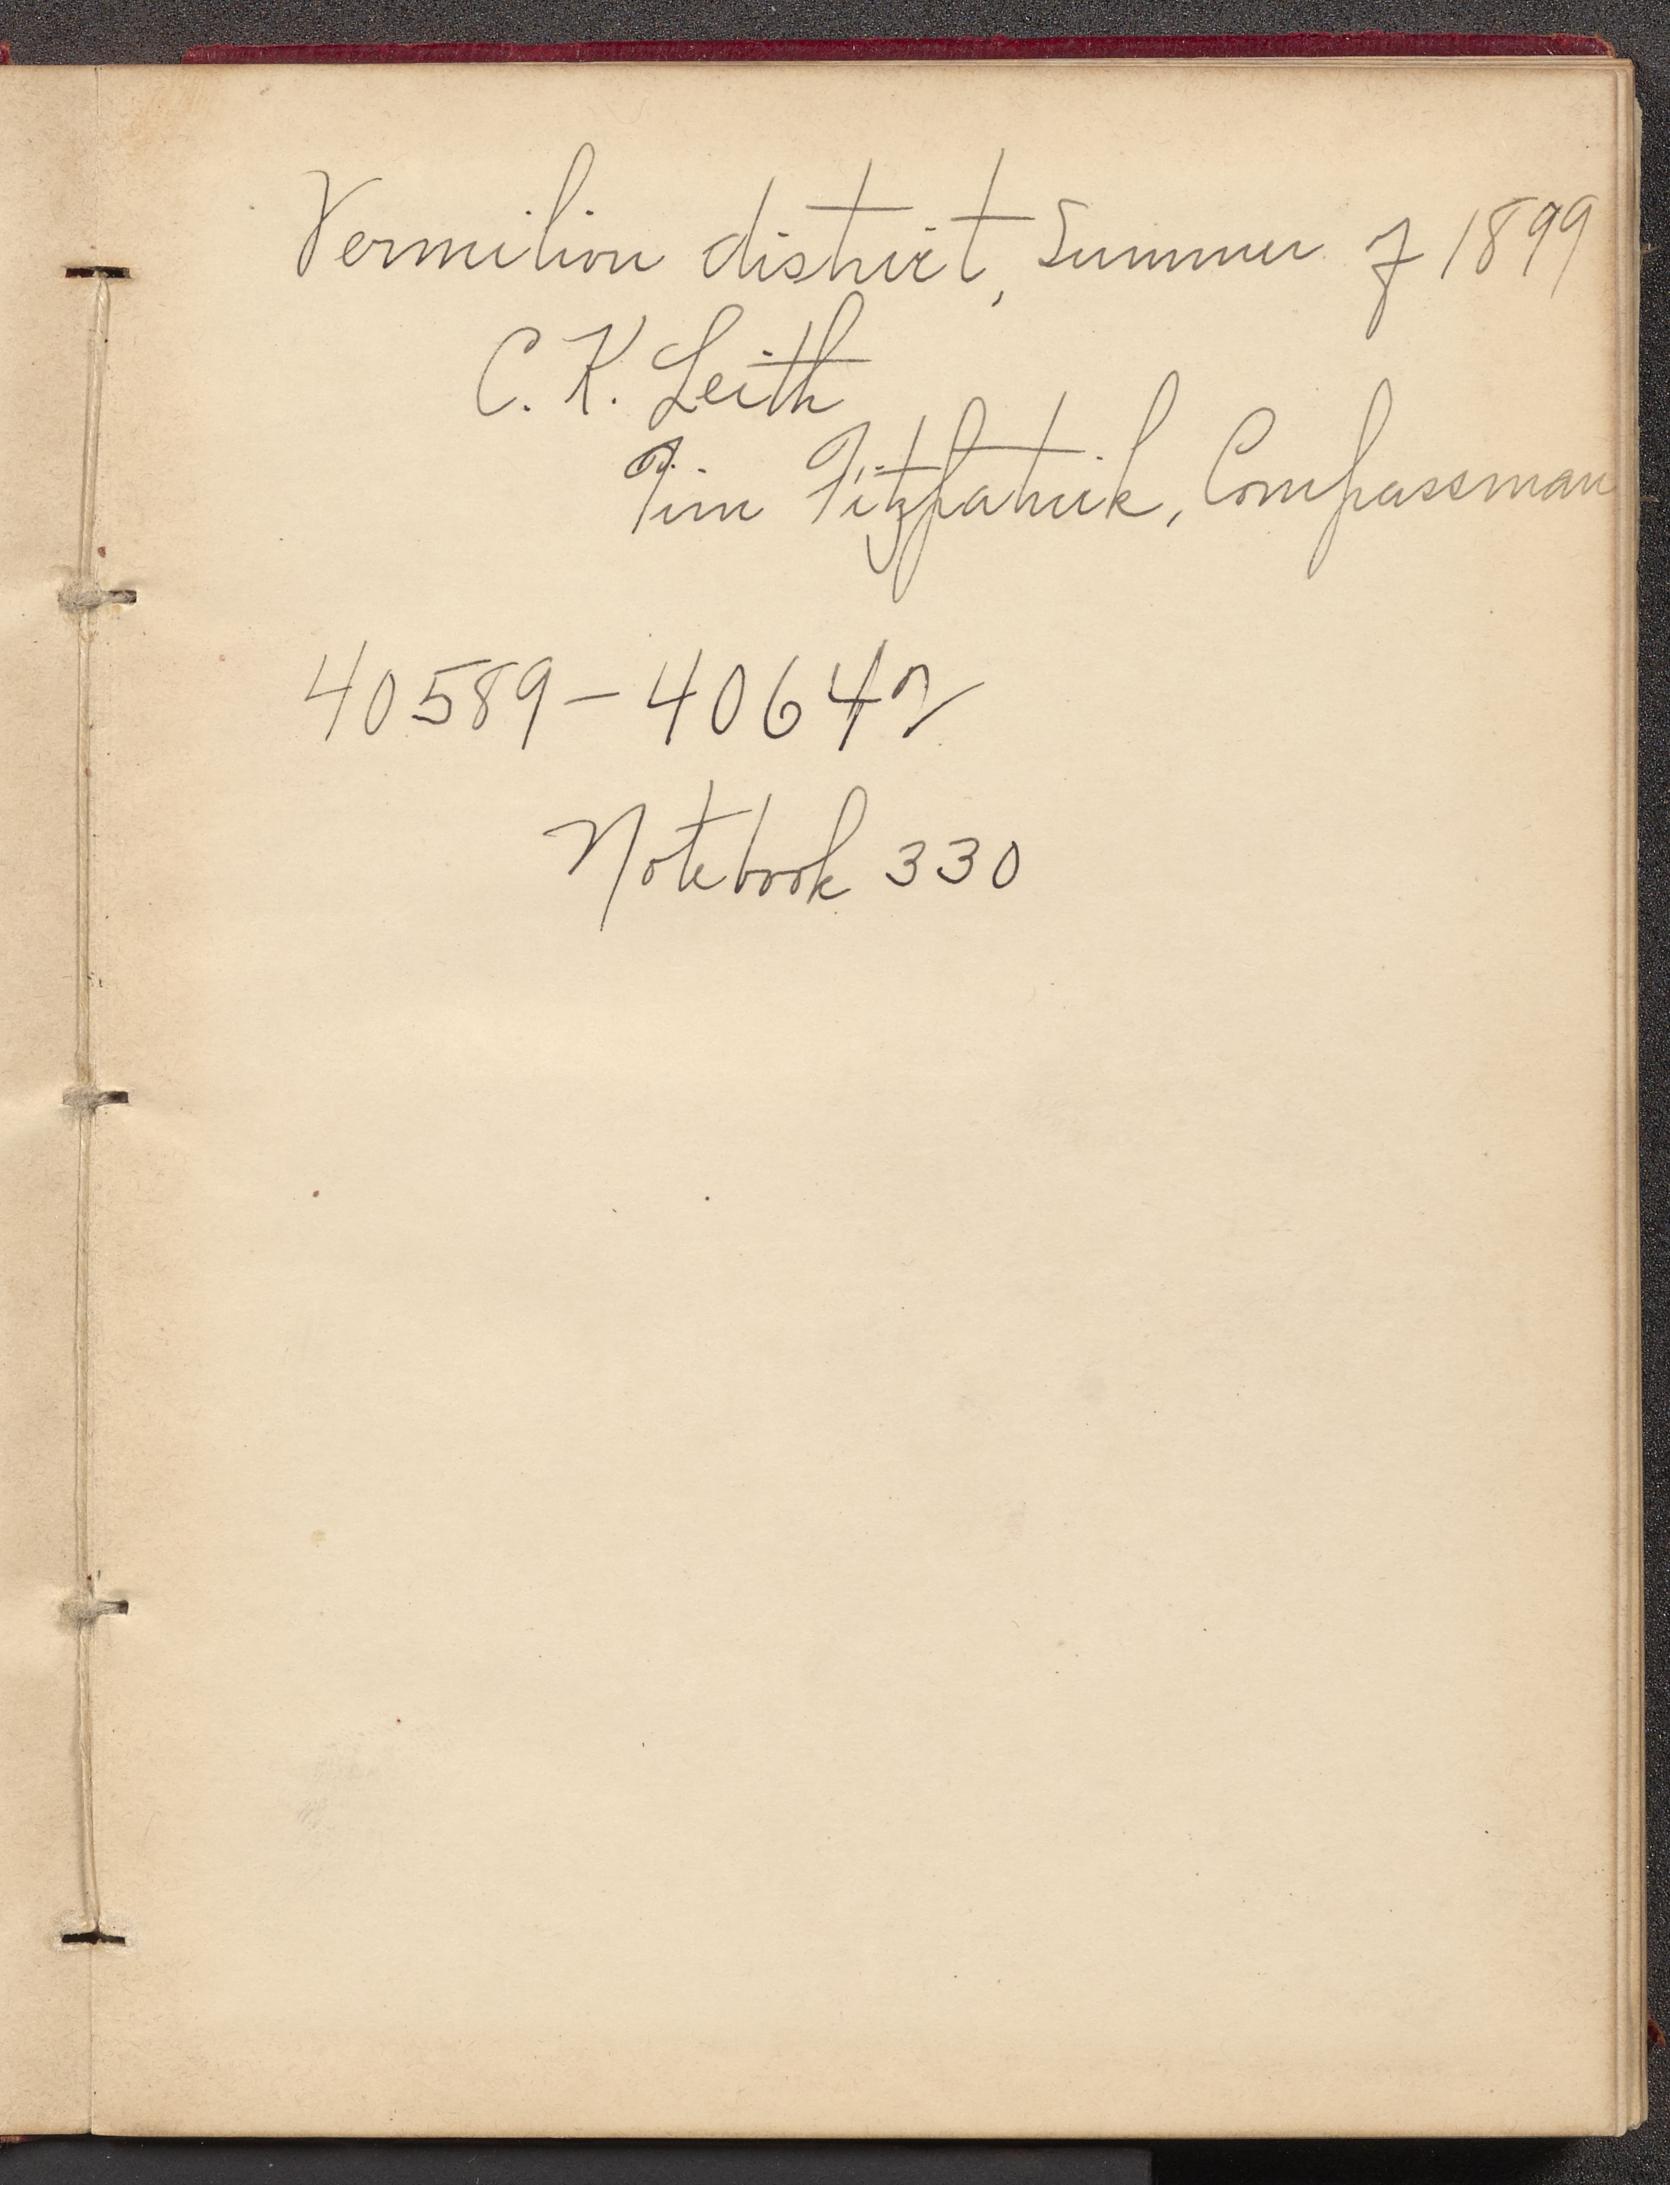 Vermilion district, Summer of 1899
C. K. Leith
Tim Fitzpatrick, Compassman
40589 - 40642
Notebook 330